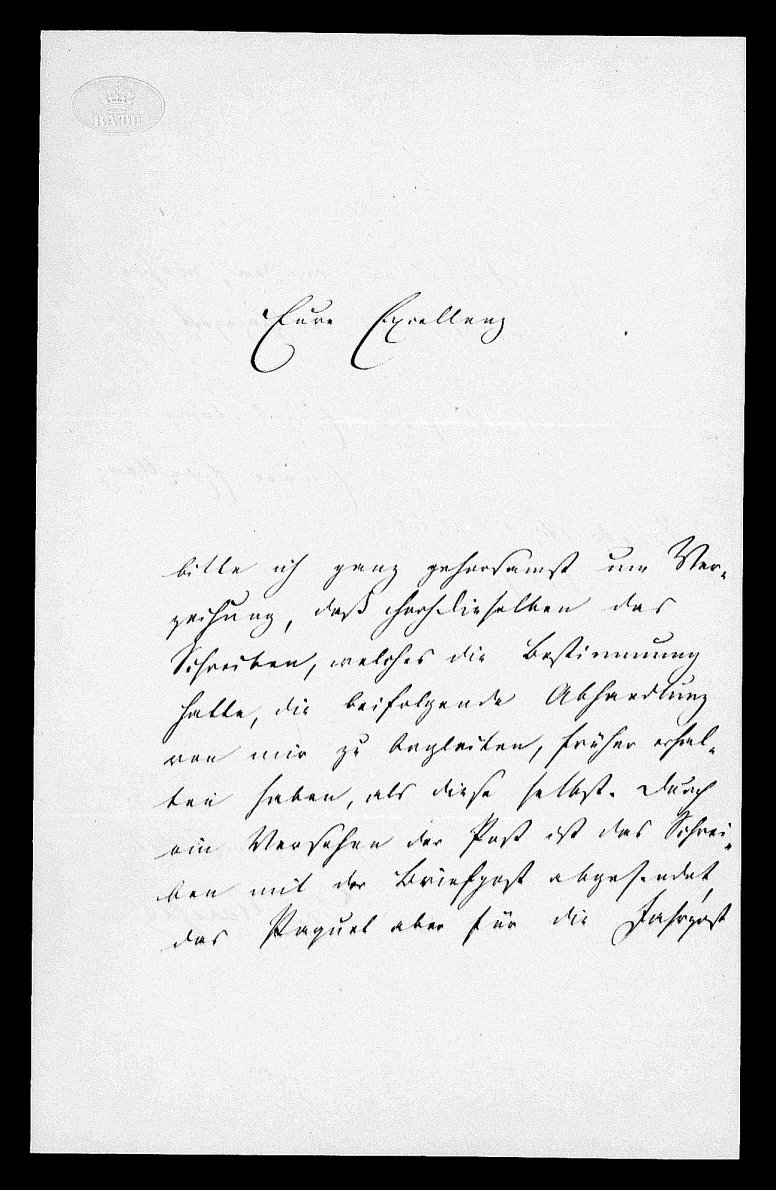 BATH
Eure Excellenz
bitte ich ganz gehorsamst um Ver-
zeihung, daß Hochdieselben das
Schreiben, welches die Bestimmung
hatte, die beifolgende Abhandlung
von mir zu begleiten, früher erhal-
ten haben, als diese selbst. Durch
ein Versehen der Post ist das Schrei-
ben mit der Briefpost abgesendet,
das Paquet aber für die Fahrpost